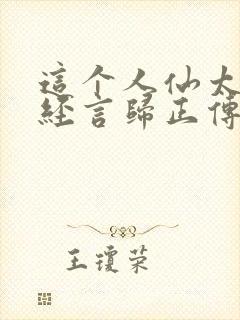 這个人仙太
經言歸正傳
王瓊荣